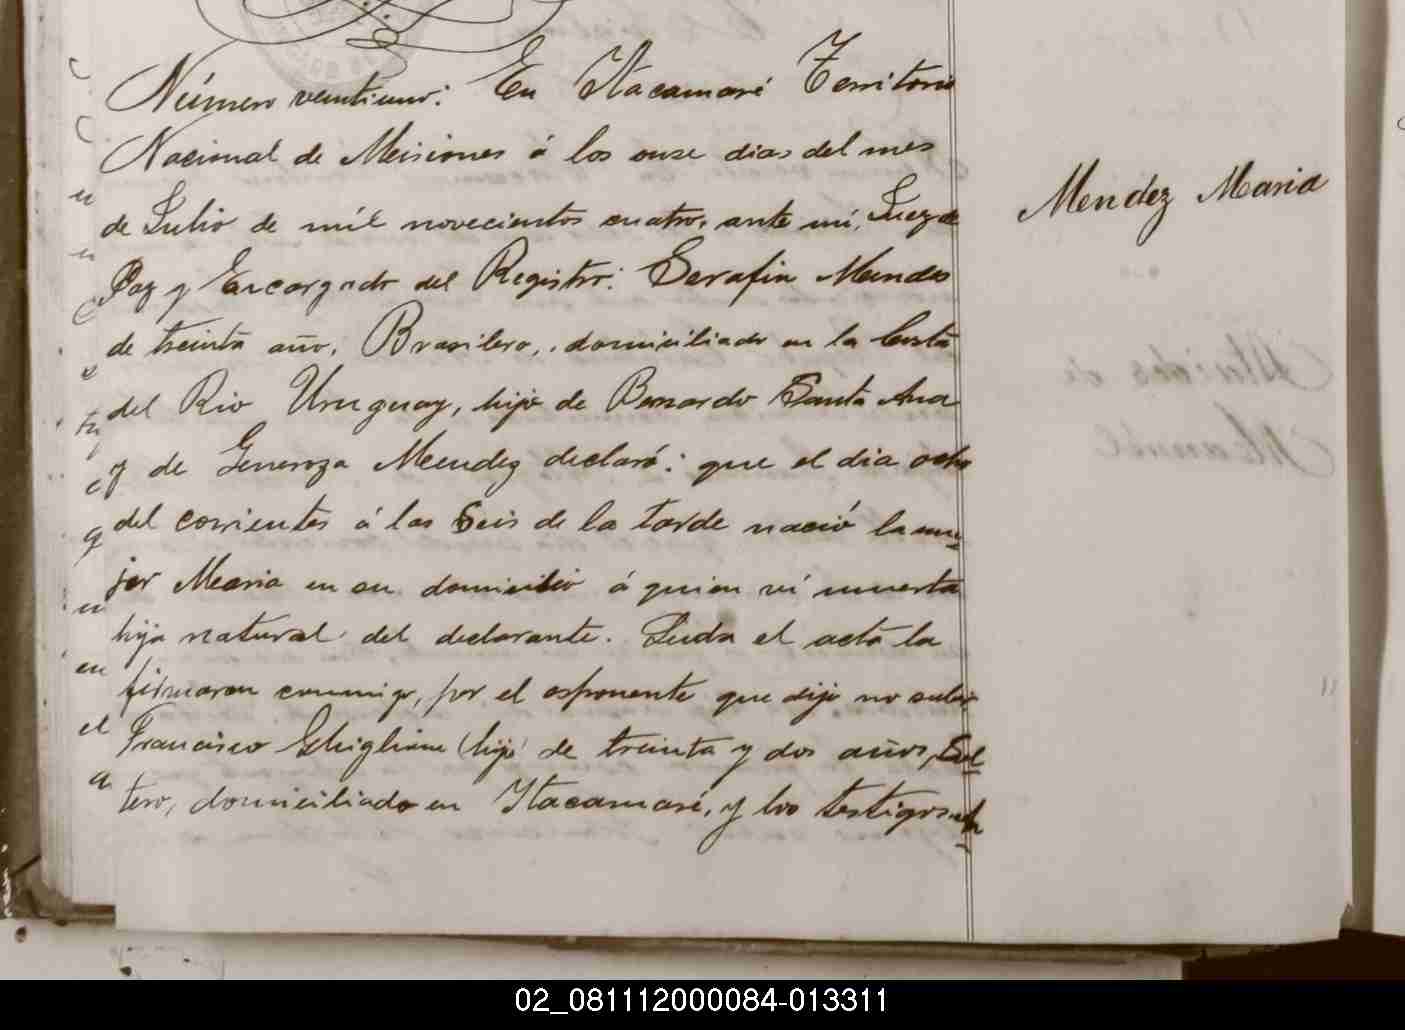 Número ventiuno: En Itacamaré Territorio
Nacional de Misiones á los onse dias del mes
de Julio de mil novecientos cuatro, ante mí, Juez de
Paz y Encargado del Registro: Serafin Mendes
de treinta año, Brasilero, domiciliado en la Costa
del Rio Uruguay, hijo de Bernardo Santa Ana
y de Generoza Mendez declaró: que el dia ocho
del corrientes á las Seis de la tarde nació la mu
jer Maria en su domicilio á quien ví muerta
hija natural del declarante. Leida el acta la
firmaron conmigo, por el esponente que dijo no saber
Francisco Ghiglione (hijo) de treinta y dos años, Sol
tero, domiciliado en Itacamaré, y los testigos
Mendez Maria
02_081112000084-013311